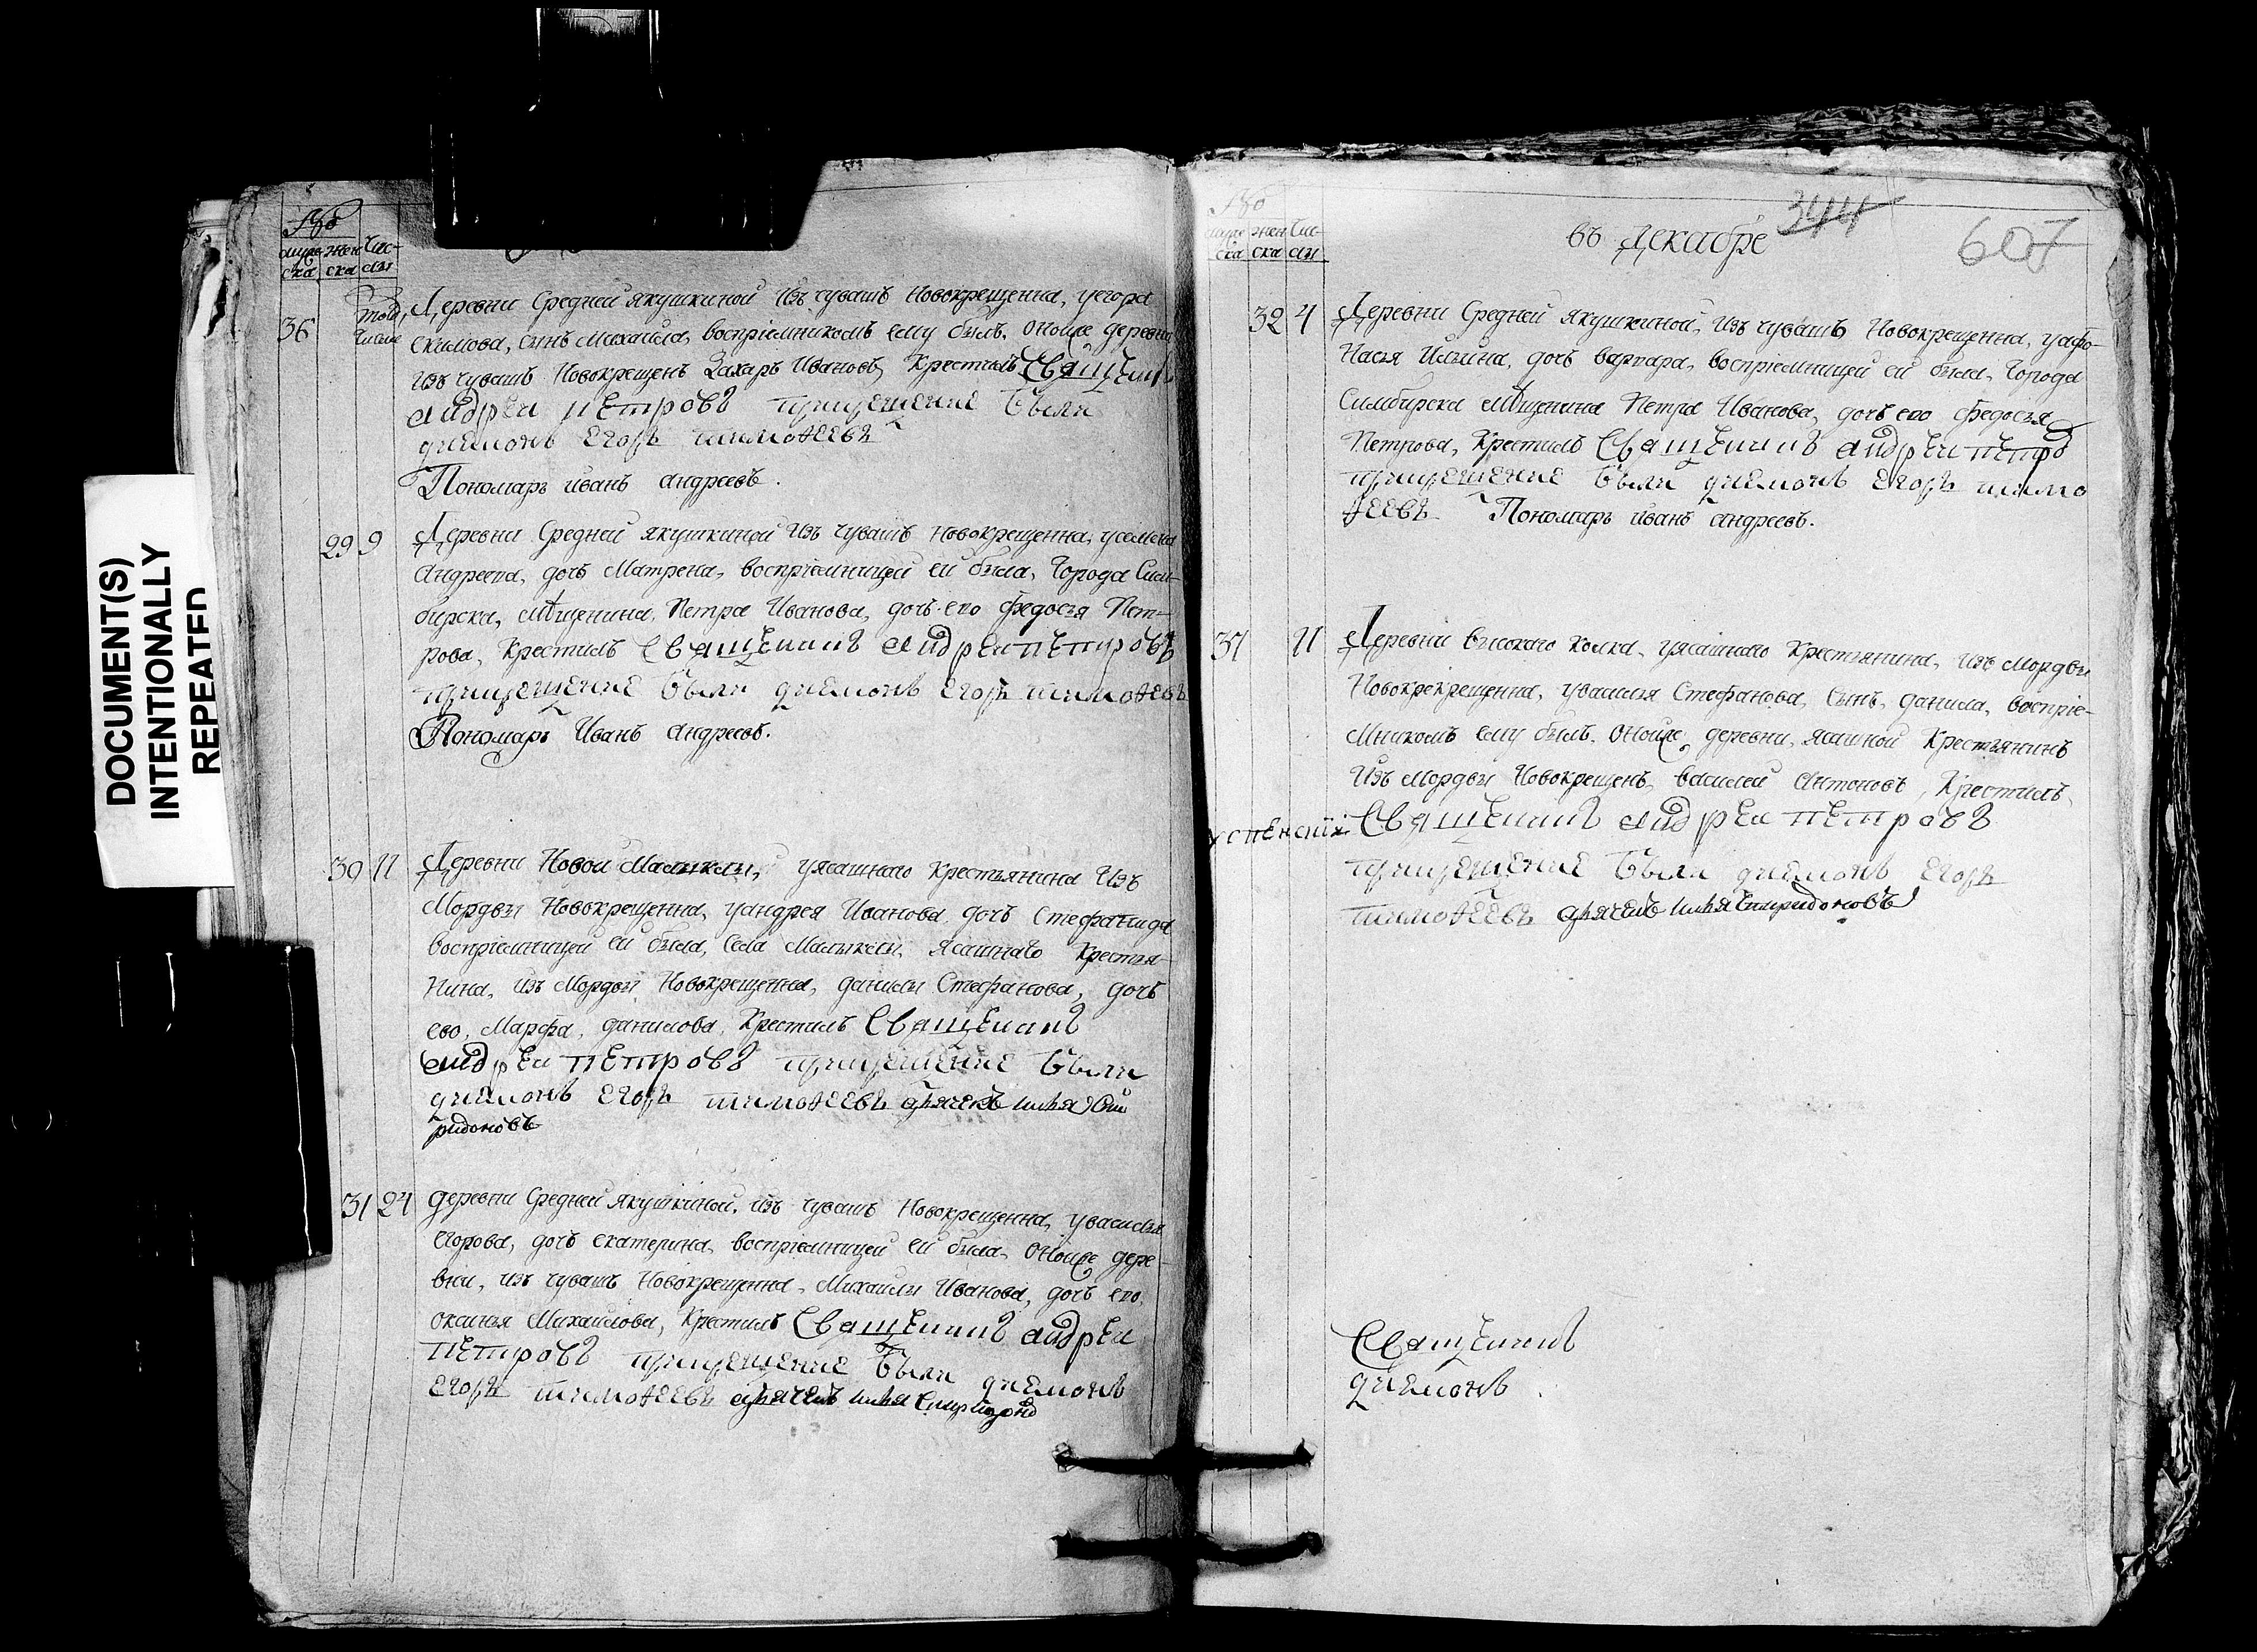 DOCUMENT(S)
INTENTIONALLY
REPEATED
муже жен Чис-
ска ска лы
36 того числа Деревни Средней якушкиной Изъ чувашъ Новокрещенна, уегора
екимова, сынъ Михаила, воспріемникомъ ему былъ. Оной же деревни
Изъ чувашъ Новокрещенъ Захаръ Ивановъ, Крестилъ Священникъ
андреи петровъ причещение были
диемонъ егоръ тимоѳеевъ
Пономарь иванъ андреевъ.
29 9 Деревни Средней якушкиной Изъ чувашъ Новокрещенна, усемена
Андреева, дочь Матрена, воспріемницей ей была, Города Сим-
бирска, мѣщенина, Петра Иванова, дочь его федосья Пет-
рова, Крестилъ Священникъ андреи петровъ
причещение были диемонъ егоръ тимоѳеевъ
Пономарь Иванъ андреевъ.
30 11 Деревни Новои Малыклы, уясашнаго Крестьянина Изъ
Мордвы Новокрещенна, уандрея Иванова, дочь Стефанида
воспріемницей ей была, Села Малыклы, Ясашнаго Крестья-
нина, изъ Мордвы Новокрещенна, данилы Стефанова, дочь
ево, Марфа, данилова, Крестилъ Священникъ
андреи петровъ причещение были
диемонъ егоръ тимоѳеевъ дьячекъ илья Спи
ридоновъ
31 24 деревни Средней Якушкиной, Изъ чувашъ Новокрещенна, увасилья
егорова, дочь екатерина, воспріемницей ей была, Оной же дере-
вни, изъ чувашъ Новокрещенна, Михаилы Иванова, дочь его,
оксинья Михаилова, Крестилъ Священникъ андреи
петровъ причещение были диемонъ
егоръ тимоѳеевъ дьячекъ илья
муже жен Чис-
ска ска лы
въ декабре
344
607
32 4 Деревни Средней якушкиной, Изъ чувашъ Новокрещенна, уафо-
Насья Ильина, дочь варвара, воспріемницей ей была, Города
Симбирска мѣщенина Петра Иванова, дочь его федосья
Петрова, Крестилъ Священникъ андреи петро
причещение были диемонъ егоръ тимо
ѳеевъ Пономарь иванъ андреевъ.
37 11 Деревни высокаго колка, уясашнаго Крестьянина, изъ Мордвы
Новокрекрещенна, увасилья Стефанова, Сынъ, данила, воспріе-
Мникомъ ему былъ. Оной же, деревни, ясашной Крестьянинъ
Изъ Мордвы Новокрещенъ, василей Антоновъ, Крестилъ,
успенскии Священникъ андреи петровъ
причещение были диемонъ егоръ
тимоѳеевъ дьячекъ илья спиридоновъ
Священникъ
диемонъ